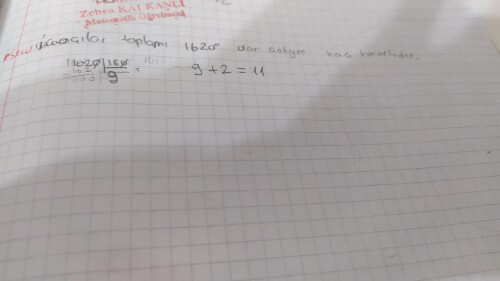 Zehra KALKANLI
Matematik Öğretmeni
İç açılar toplamı 1620° olan çokgen kaç kenarlıdır.
1620 180
162 9
000
9+2=11